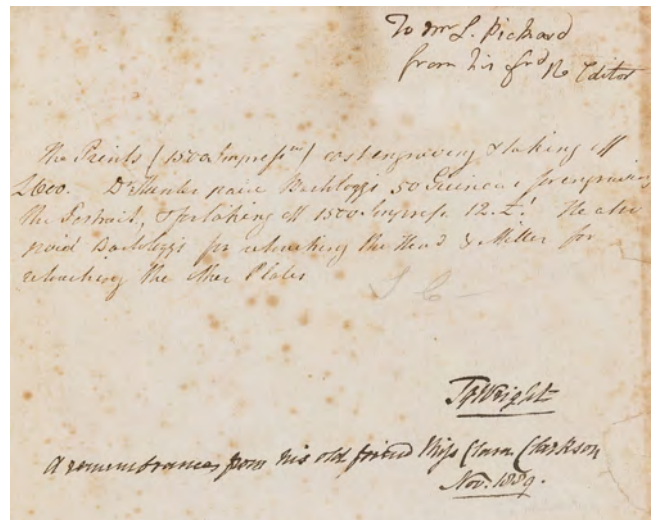 To Mr L. Pickard
from his frd the Editor
The Prints (1500 Impressns) cost engraving & taking off
£600. Dr Hunter paid Bartolozzi 50 Guineas for engraving
the Portrait, & for taking off 1500 Impress. 12.£! He also
paid Bartolozzi for retouching the Head & Miller for
retouching the other Plates
J C
Wright
A remembrance from his old friend Miss Clara Clarkson
Nov. 1889.